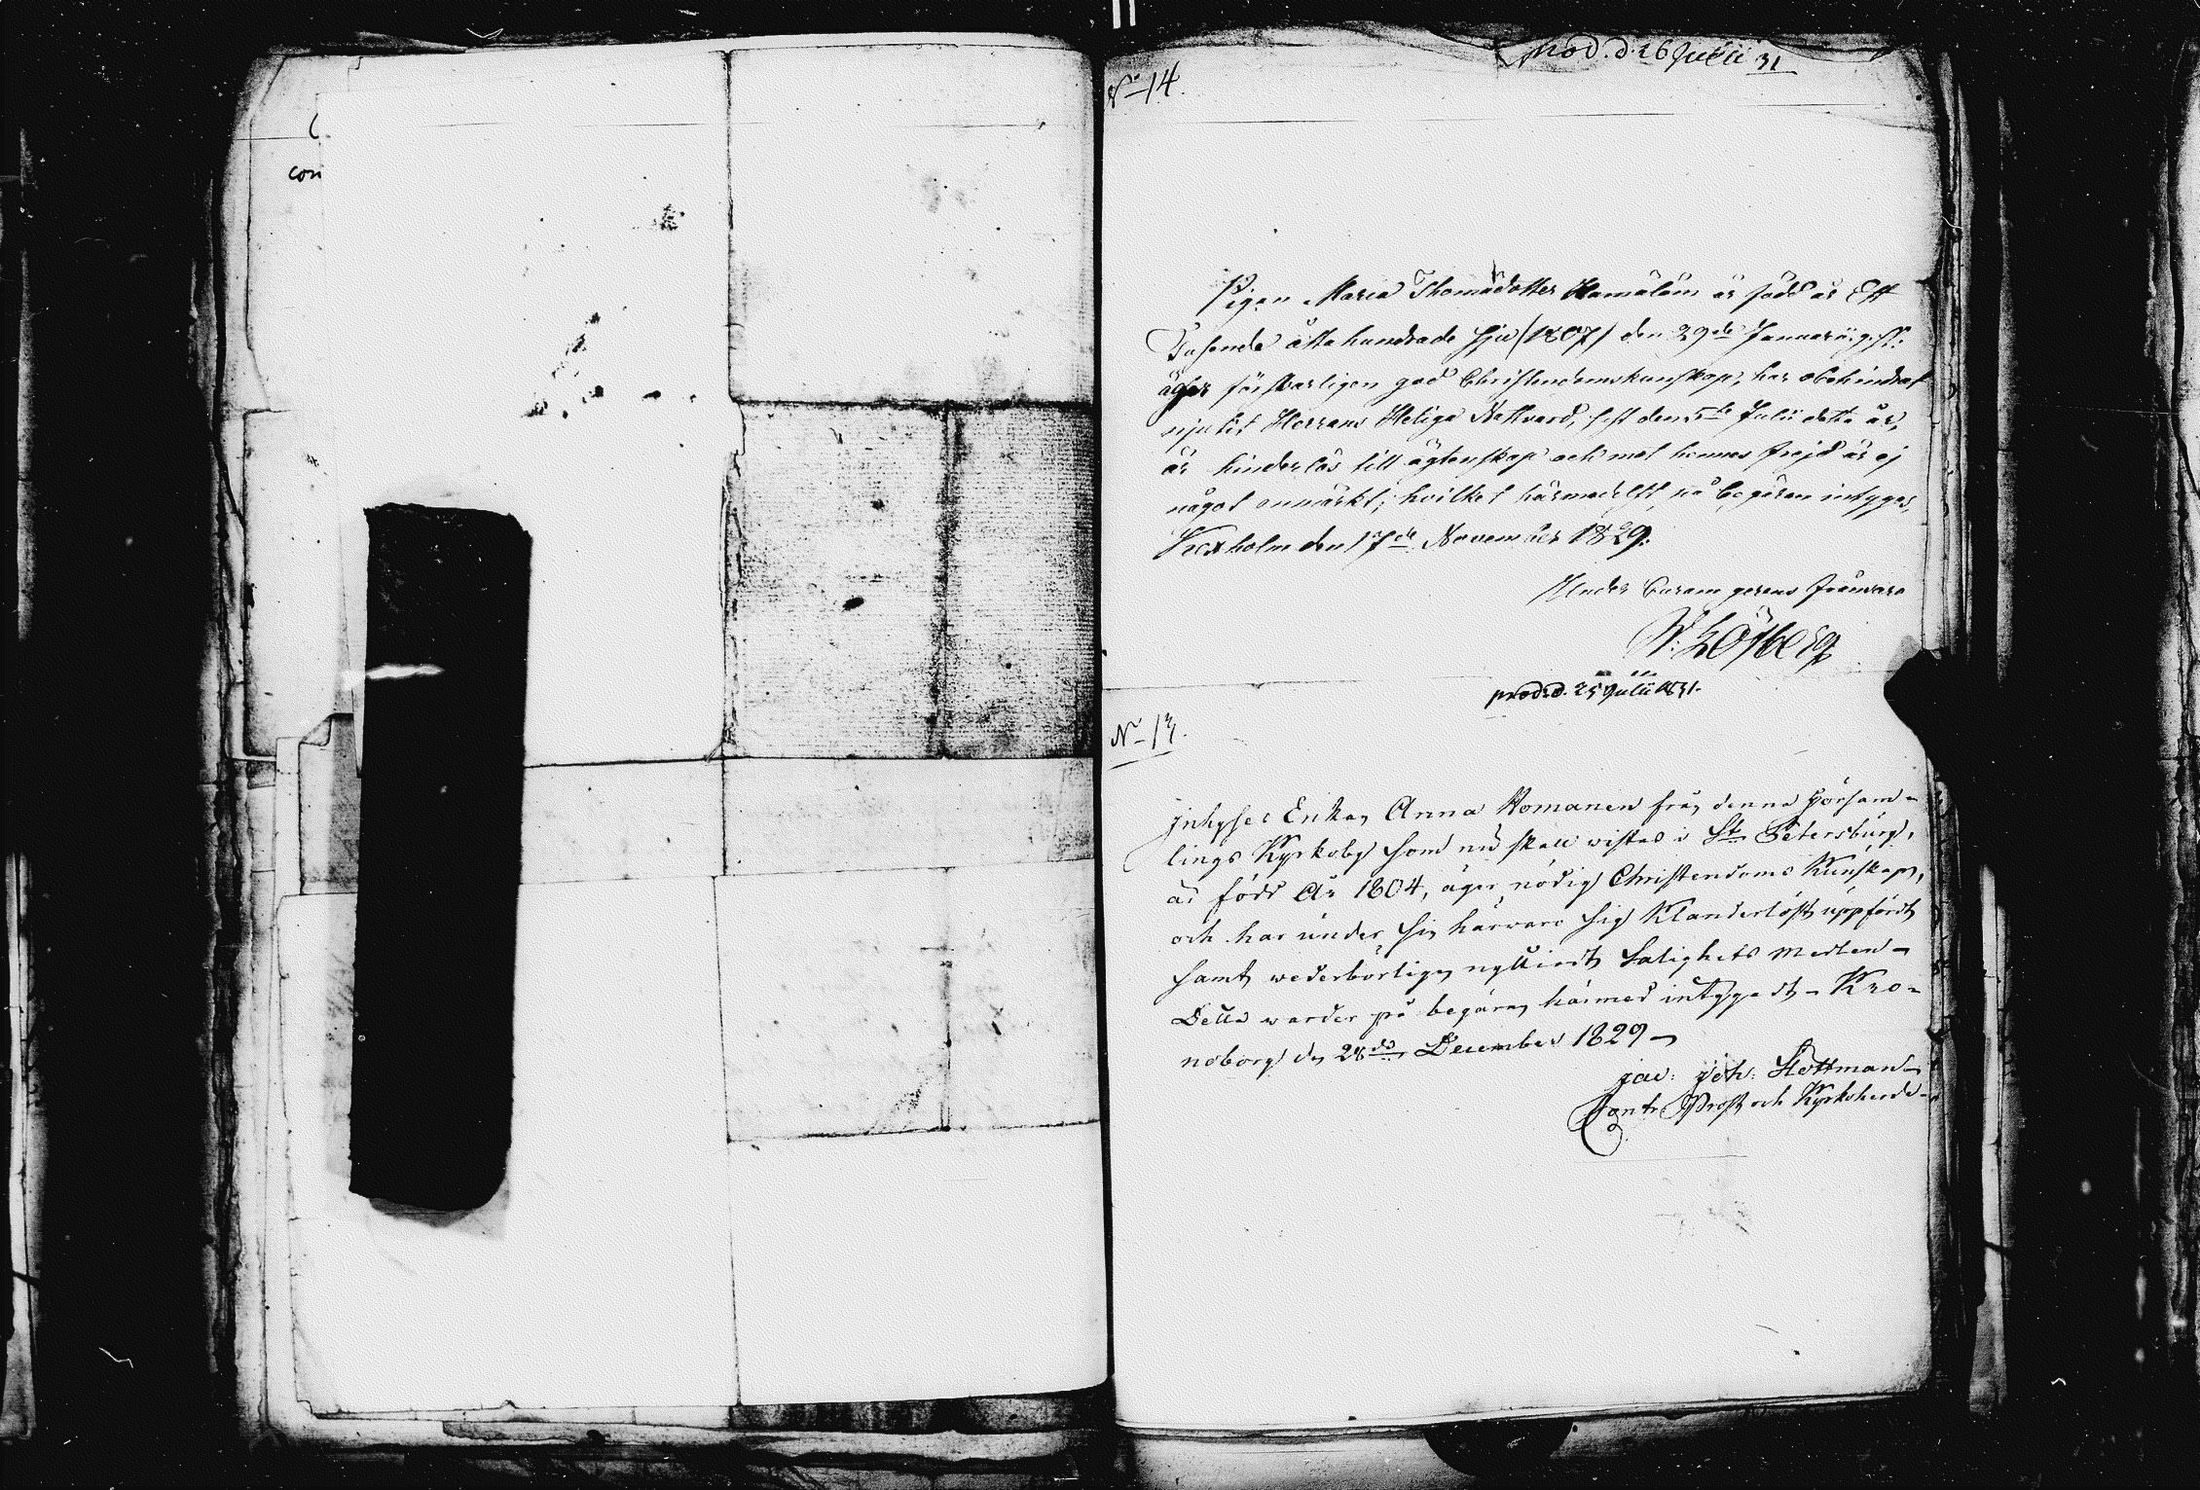 con
prod. d. 26 Julii 31
No 14.
Pigan Maria Thomasdotter Hämäläin är född år Ett
Tusende åtta hundrade sju (1807) den 29de Januarii g. st.
äger försvarligen god Christendomskunskap, har obehindrat
njutit Herrans Heliga Nattvard, sist den 5te Julii detta år,
är hinderlös till ägtenskap och mot hennes frejd är ej
något anmärkt; hvilket härmedelst på begäran intygas,
Kexholm den 17de November 1829.
Under Curam gerens frånvaro
Löfberg
prod. d. 25 Julii 1831.
No 13.
Inhyses Enkan Anna Homanen från denna Försam-
lings Kyrkoby som nu skall wistas i St Petersburg,
är född År 1804, äger nödig Christendoms Kunskap,
och har under sin härvaro sig Klanderlöst uppfördt
samt wederbörligen nyttjadt Salighets Medlen -
Detta warder på begäran härmed intygadt - Kro-
noborg den 28de December 1829 -
Jac: Joh: Hottman
Contr Prost och Kyrkoherde -